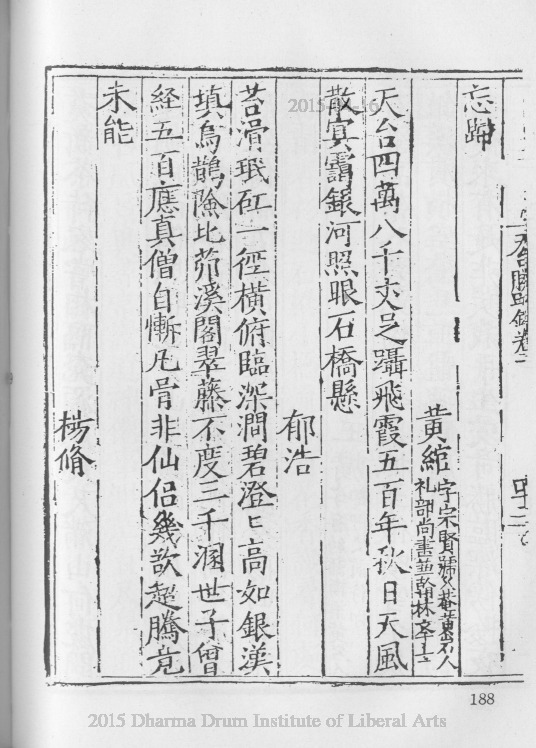 天台勝蹟錄卷二
忘歸
黃綰 字宗賢號久菴黃岩人
礼部尚書兼翰林學士
天台四萬八千丈足躡飛霞五百年秋日天風
散冥靄銀河照眼石橋懸
郁浩
苔滑珉矼一徑橫俯臨深澗碧澄匕高如銀漢
填烏鵲險比茆溪閣翠藤不度三千溷世子曾
経五百應真僧自慚凡骨非仙侣幾欲超騰竟
未能
楊脩
188
2015 Dharma Drum Institute of Liberal Arts